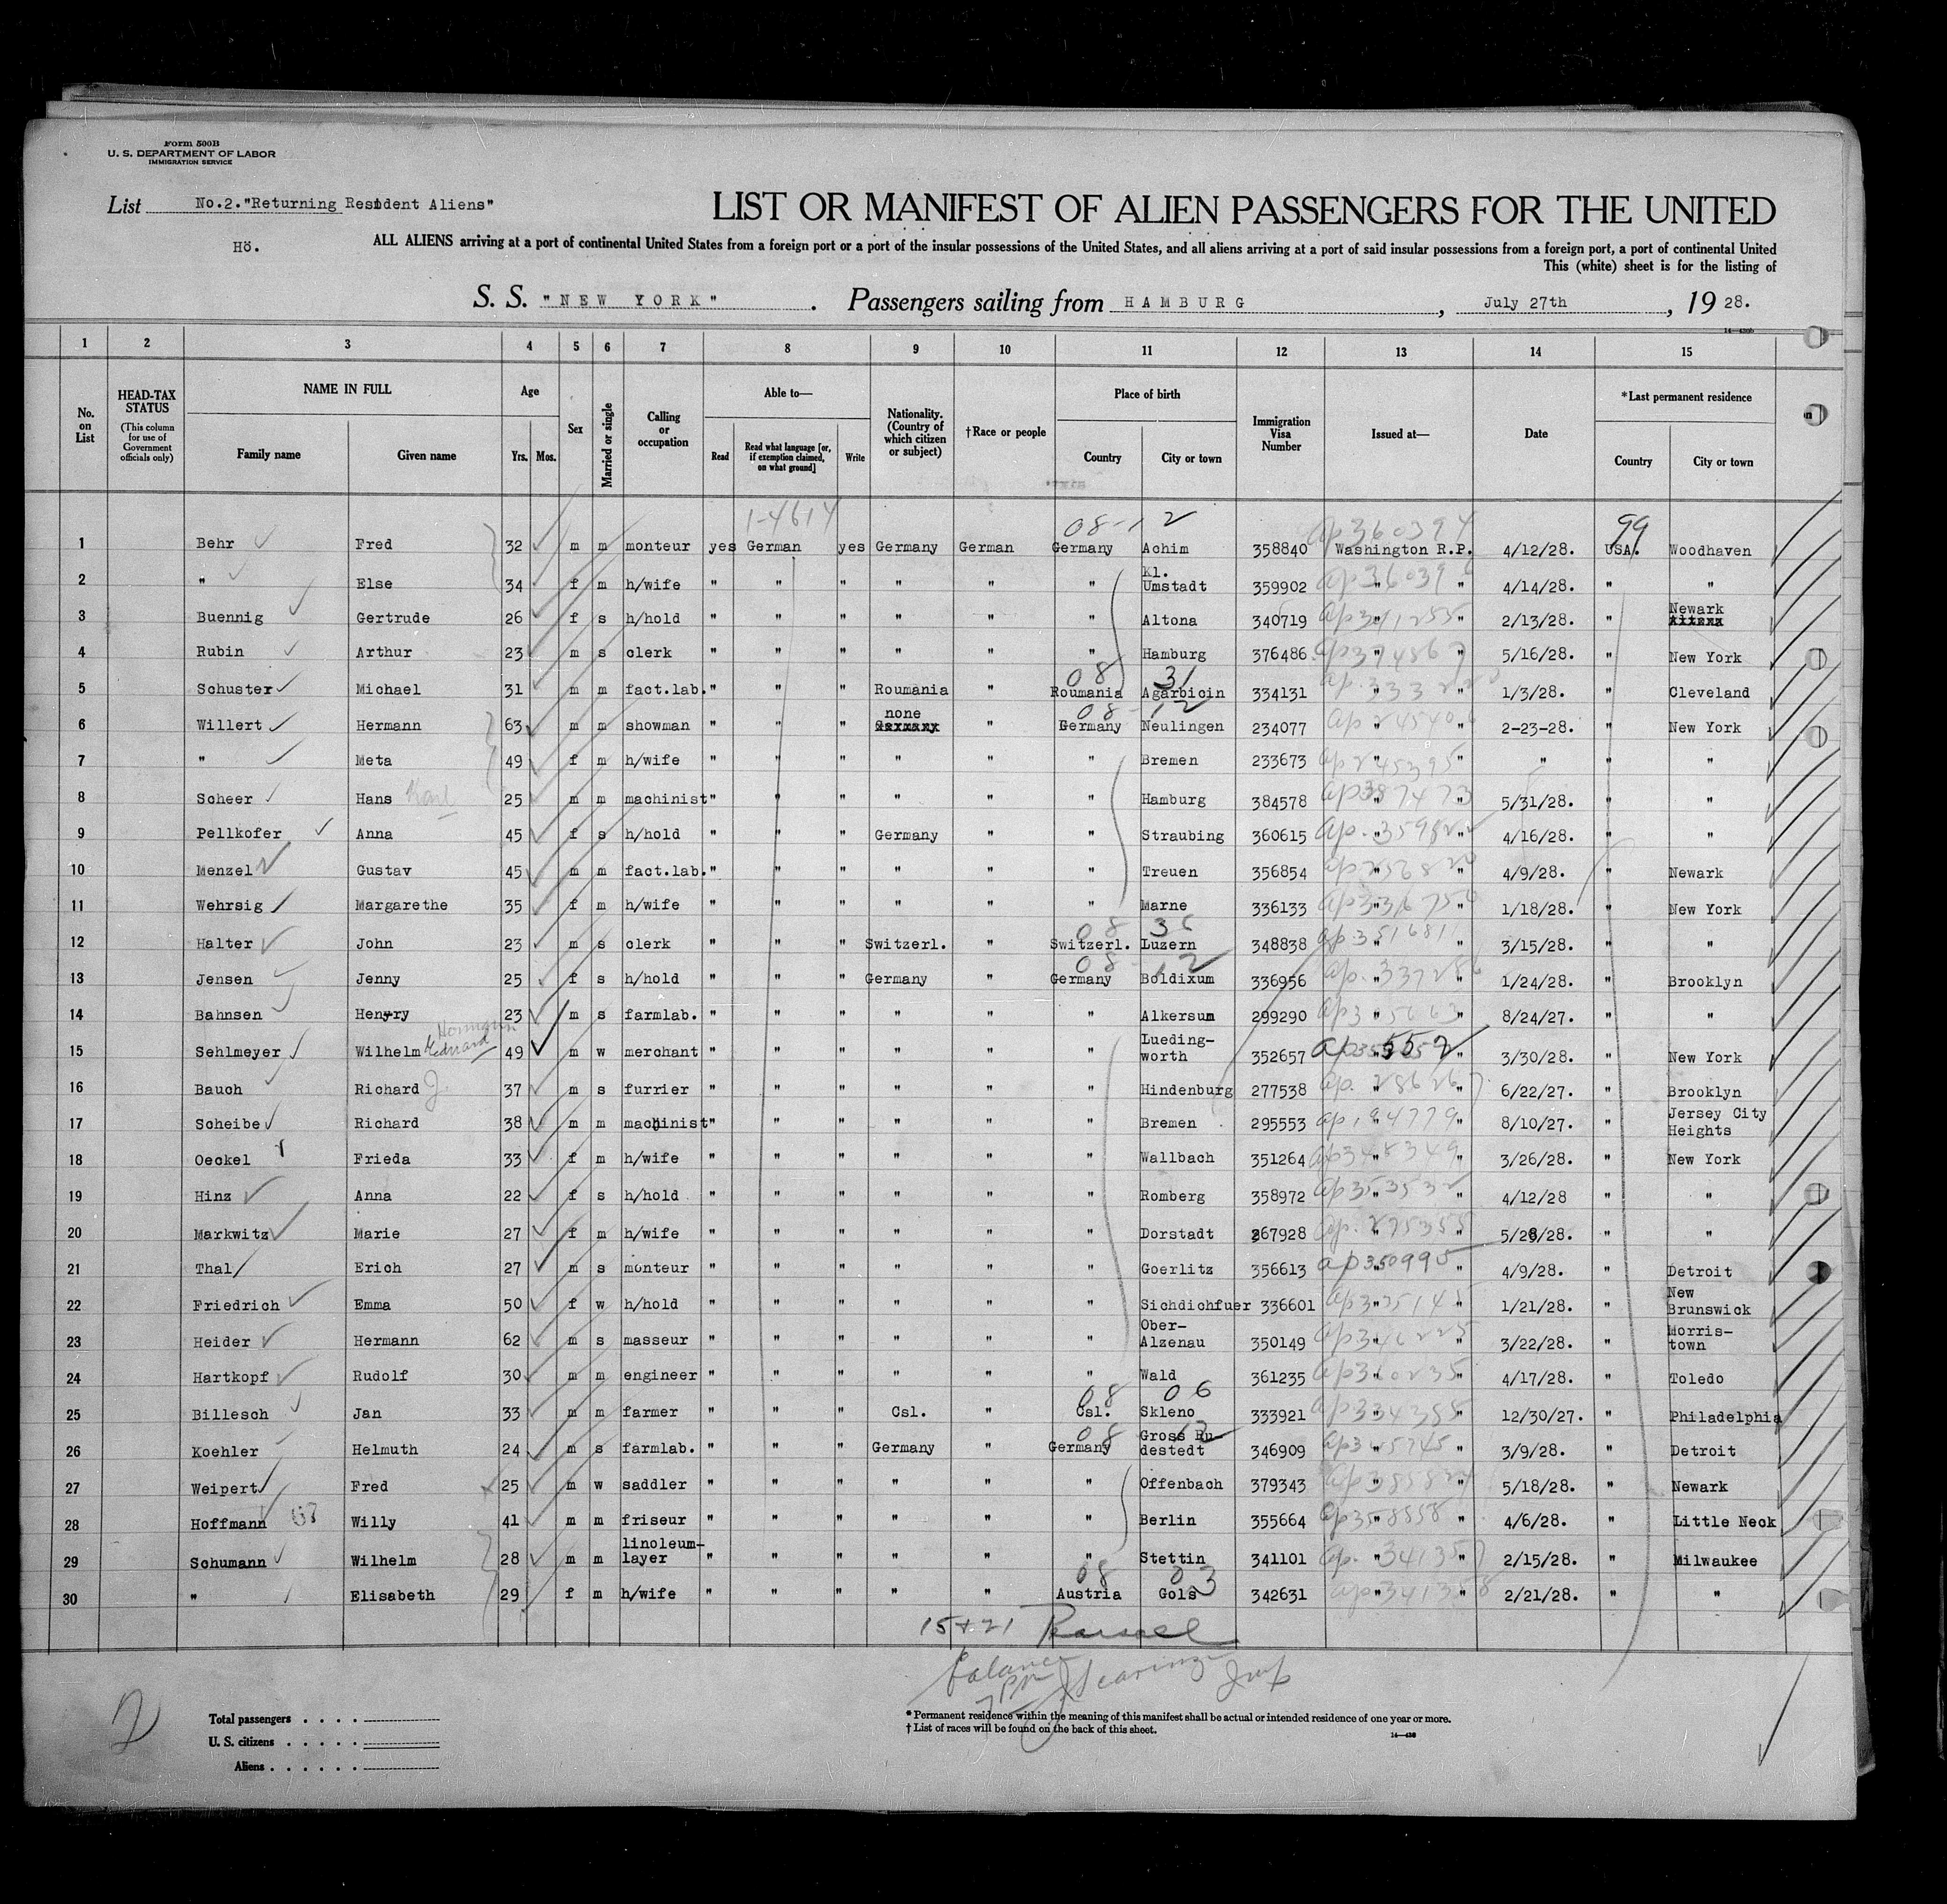 Form 500B
U. S. DEPARTMENT OF LABOR
IMMIGRATION SERVICE
List No.2."Returning Resident Aliens"
LIST OR MANIFEST OF ALIEN PASSENGERS FOR THE UNITED
Hö.
ALL ALIENS arriving at a port of continental United States from a foreign port or a port of the insular possessions of the United States, and all aliens arriving at a port of said insular possessions from a foreign port, a port of continental United
This (white) sheet is for the listing of
S. S. "NEW YORK". Passengers sailing from HAMBURG, July 27th, 19 28.
14—430b
1 2 3 4 5 6 7 8 9 10 11 12 13 14 15
No. on List
HEAD-TAX STATUS (This column for use of Government officials only)
NAME IN FULL
Family name Given name
Age
Yrs. Mos.
Sex
Married or single
Calling or occupation
Able to—
Read Read what language [or, if exemption claimed, on what ground] Write
Nationality. (Country of which citizen or subject)
†Race or people
Place of birth
Country City or town
Immigration Visa Number
Issued at—
Date
*Last permanent residence
Country City or town
1-4614 08-12 ap360394 99
1 Behr Fred 32 m m monteur yes German yes Germany German Germany Achim 358840 Washington R.P. 4/12/28. USA. Woodhaven
2 " Else 34 f m h/wife " " " " " " Kl. Umstadt 359902 " " 4/14/28. " "
3 Buennig Gertrude 26 f s h/hold " " " " " " Altona 340719 " " 2/13/28. " Newark
4 Rubin Arthur 23 m s clerk " " " " " " Hamburg 376486 " " 5/16/28. " New York
08 31
5 Schuster Michael 31 m m fact.lab. " " " Roumania " Roumania Agarbicin 334131 " " 1/3/28. " Cleveland
08-12
6 Willert Hermann 63 m m showman " " " none Germany " Germany Neulingen 234077 " " 2-23-28. " New York
7 " Meta 49 f m h/wife " " " " " " Bremen 233673 ap245395 " " " "
8 Scheer Hans Karl 25 m m machinist " " " " " " Hamburg 384578 ap387473 " 5/31/28. " "
9 Pellkofer Anna 45 f s h/hold " " " Germany " " Straubing 360615 " " 4/16/28. " "
10 Menzel Gustav 45 m m fact.lab. " " " " " " Treuen 356854 " " 4/9/28. " Newark
11 Wehrsig Margarethe 35 f m h/wife " " " " " " Marne 336133 " " 1/18/28. " New York
08
12 Halter John 23 m s clerk " " " Switzerl. " Switzerl. Luzern 348838 " " 3/15/28. " "
08 12
13 Jensen Jenny 25 f s h/hold " " " Germany " Germany Boldixum 336956 " " 1/24/28. " Brooklyn
14 Bahnsen Henry 23 m s farmlab. " " " " " " Alkersum 299290 " " 8/24/27. " "
15 Sehlmeyer Wilhelm 49 m w merchant " " " " " " Lueding- worth 352657 " " 3/30/28. " New York
16 Bauch Richard J. 37 m s furrier " " " " " " Hindenburg 277538 " " 6/22/27. " Brooklyn
17 Scheibe Richard 38 m m machinist " " " " " " Bremen 295553 " " 8/10/27. " Jersey City Heights
18 Oeckel Frieda 33 f m h/wife " " " " " " Wallbach 351264 ap348349 " 3/26/28. " New York
19 Hinz Anna 22 f s h/hold " " " " " " Romberg 358972 " " 4/12/28 " "
20 Markwitz Marie 27 f m h/wife " " " " " " Dorstadt 267928 ap. 275355 " 5/28/28. " "
21 Thal Erich 27 m s monteur " " " " " " Goerlitz 356613 ap350995 " 4/9/28. " Detroit
22 Friedrich Emma 50 f w h/hold " " " " " " Sichdichfuer 336601 " " 1/21/28. " New Brunswick
23 Heider Hermann 62 m s masseur " " " " " " Ober- Alzenau 350149 " " 3/22/28. " Morris- town
24 Hartkopf Rudolf 30 m m engineer " " " " " " Wald 361235 ap360235 " 4/17/28. " Toledo
08 06
25 Billesch Jan 33 m m farmer " " " Csl. " Csl. Skleno 333921 ap334355 " 12/30/27. " Philadelphia
08 12
26 Koehler Helmuth 24 m s farmlab. " " " Germany " Germany Gross Ru- destedt 346909 ap345745 " 3/9/28. " Detroit
27 Weipert Fred 25 m w saddler " " " " " " Offenbach 379343 " " 5/18/28. " Newark
28 Hoffmann Willy 41 m m friseur " " " " " " Berlin 355664 ap358558 " 4/6/28. " Little Neck
29 Schumann Wilhelm 28 m m linoleum- layer " " " " " " Stettin 341101 ap. 341357 " 2/15/28. " Milwaukee
08 03
30 " Elisabeth 29 f m h/wife " " " " " Austria Gols 342631 ap341358 " 2/21/28. " "
15+21
balance
2
Total passengers . . . .
U. S. citizens . . . . .
Aliens . . . . . .
* Permanent residence within the meaning of this manifest shall be actual or intended residence of one year or more.
† List of races will be found on the back of this sheet.
14—430